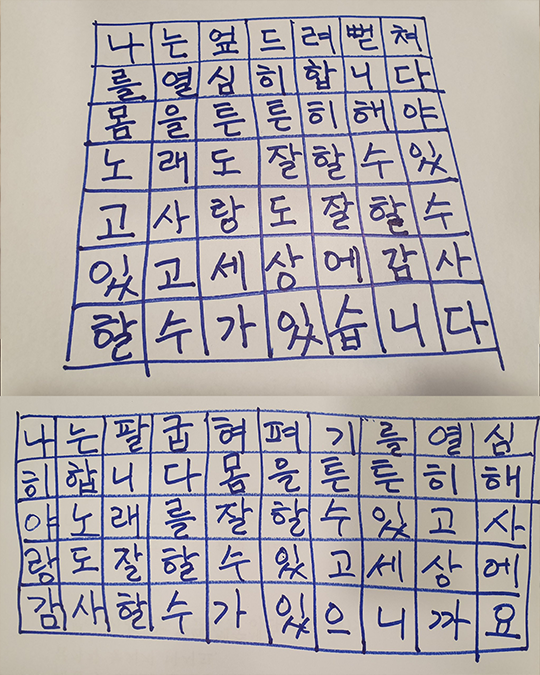 나는엎드려뻗쳐
를열심히합니다
몸을튼튼히해야
노래도잘할수있
고사랑도잘할수
있고세상에감사
할수가있습니다
나는팔굽혀펴기를열심
히합니다몸을튼튼히해
야노래를잘할수있고사
랑도잘할수있고세상에
감사할수가있으니까요